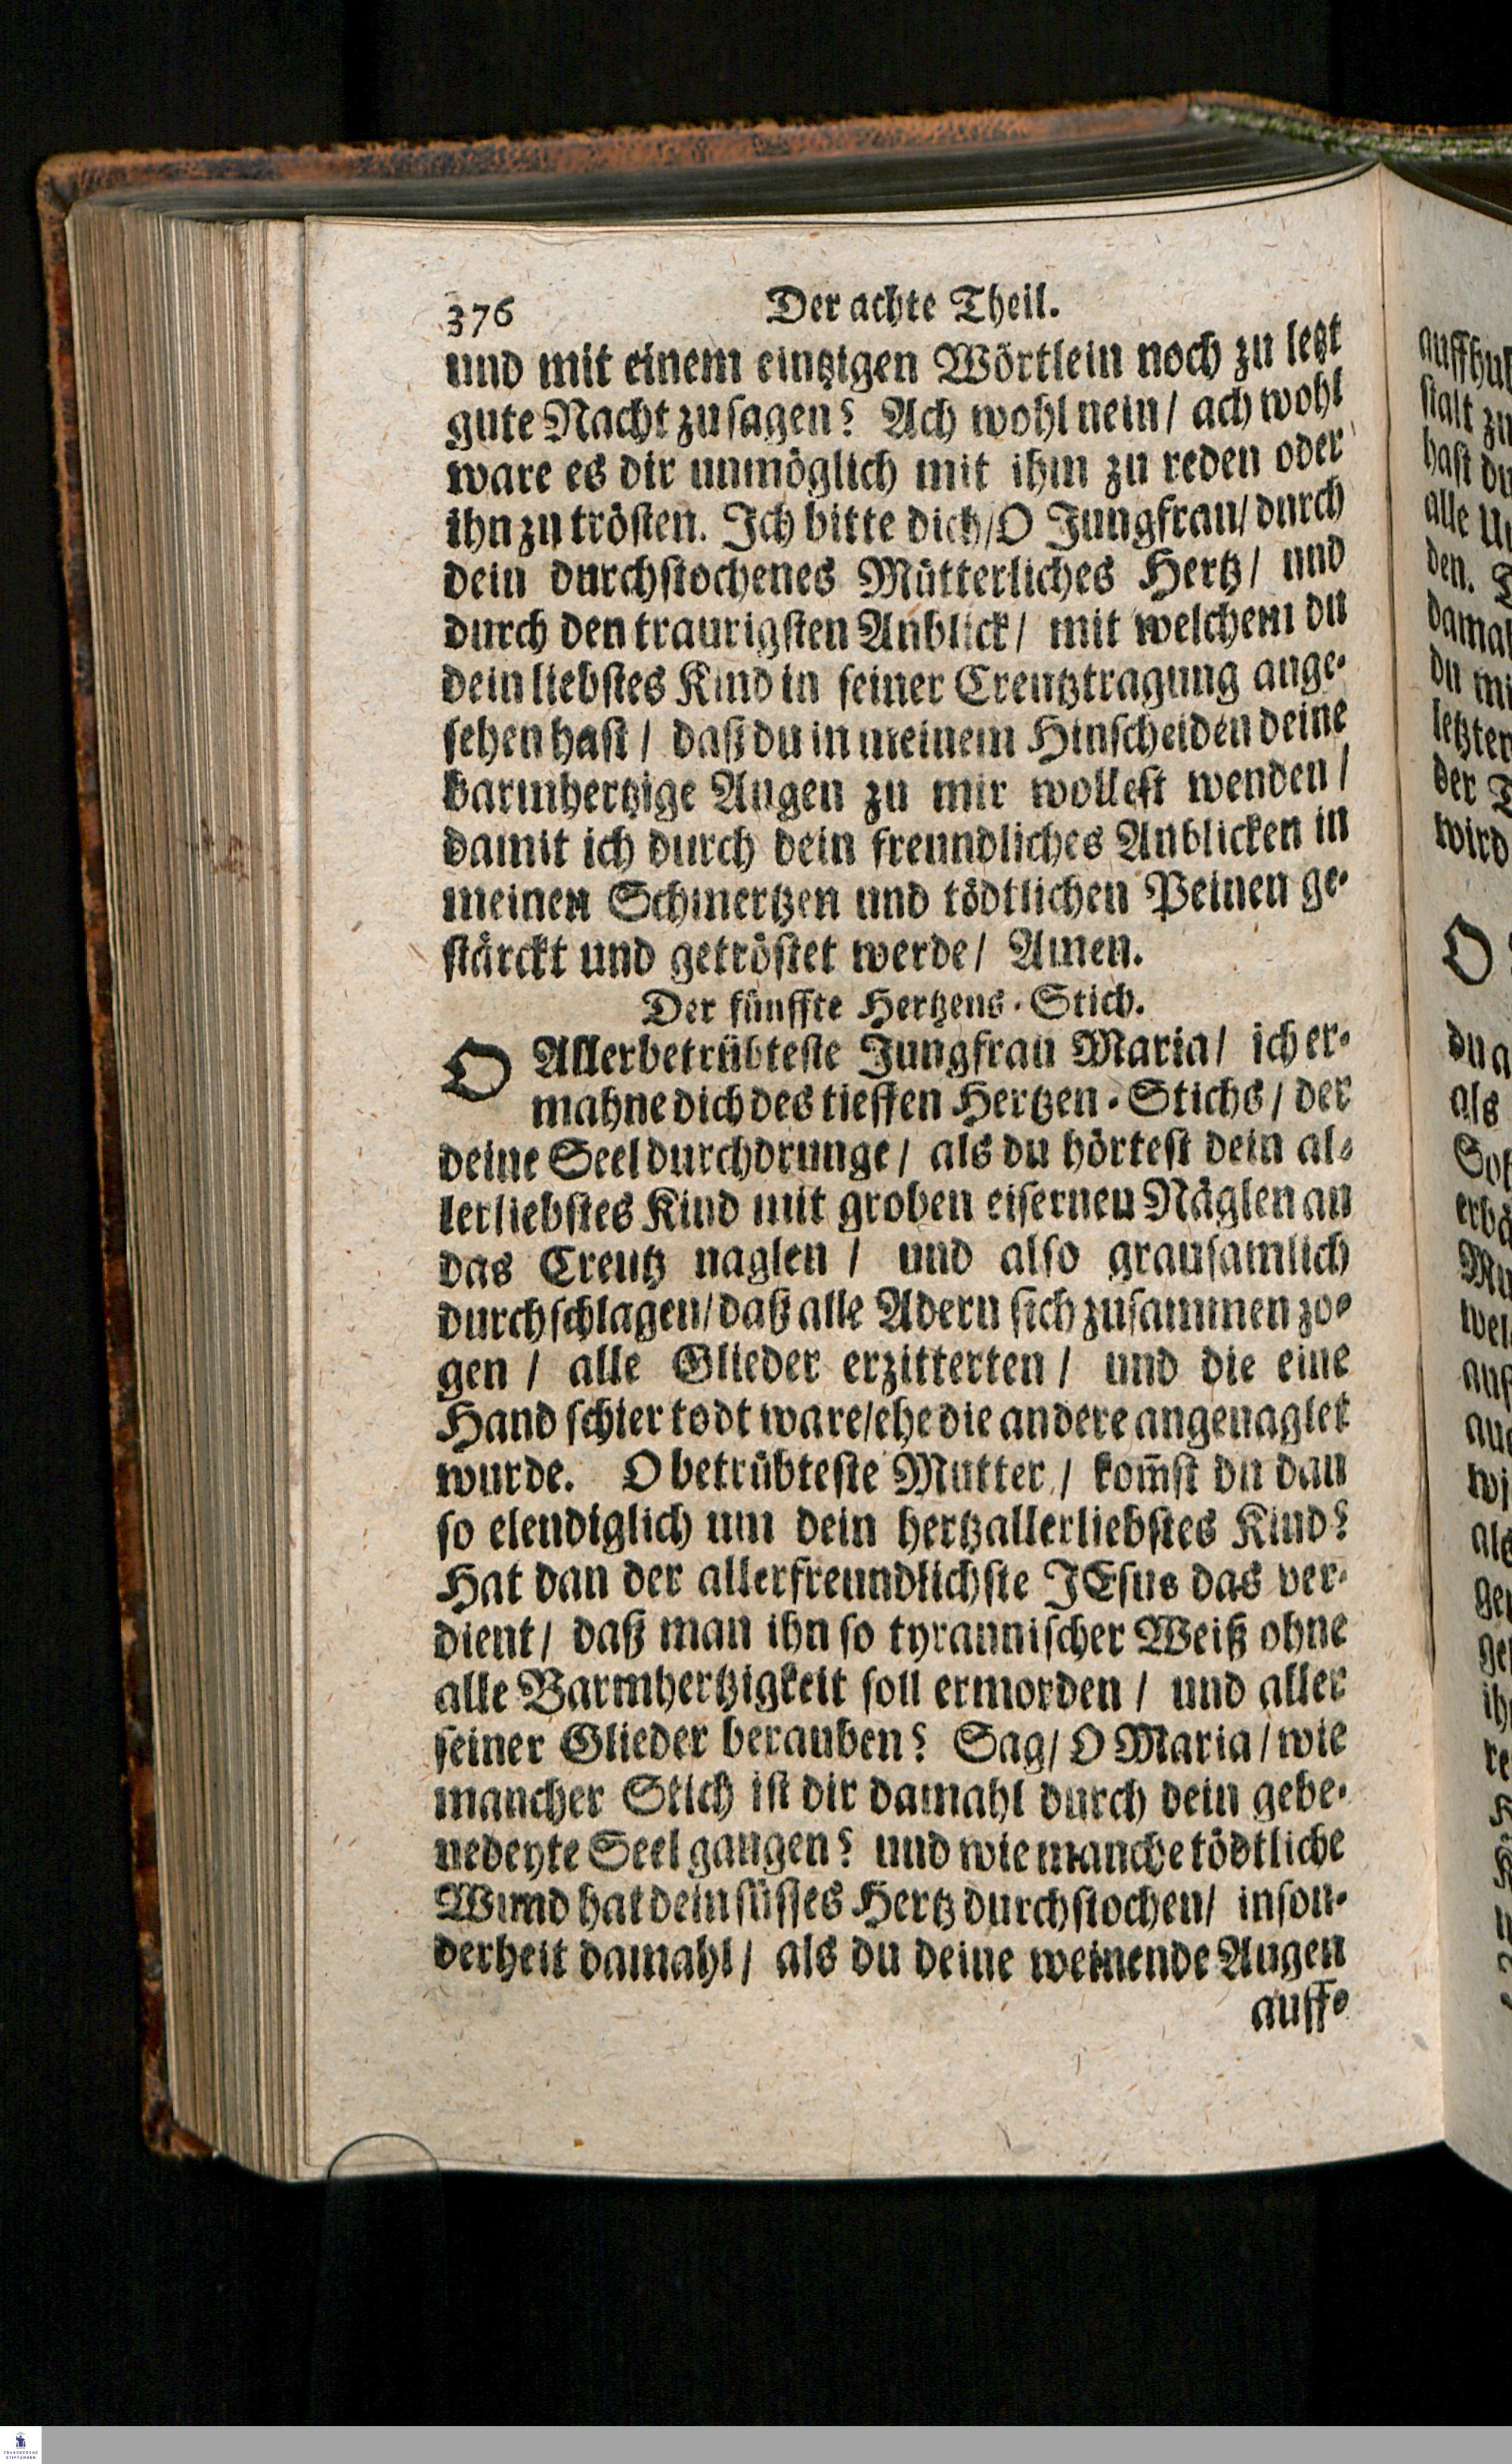 376 Der achte Theil.
und mit einem eintzigen Wörtlein noch zu letzt
gute Nacht zu sagen? Ach wohl nein / ach wohl
ware es dir unmöglich mit ihm zu reden oder
ihn zu trösten. Ich bitte dich / O Jungfrau / durch
dein durchstochenes Mütterliches Hertz / und
durch den traurigsten Anblick / mit welchem du
dein liebstes Kind in seiner Creutztragung ange-
sehen hast / daß du in meinem Hinscheiden deine
barmhertzige Augen zu mir wollest wenden /
damit ich durch dein freundliches Anblicken in
meinen Schmertzen und tödtlichen Peinen ge-
stärckt und getröstet werde / Amen.
Der fünffte Hertzens-Stich.
O Allerbetrübteste Jungfrau Maria / ich er-
mahne dich des tieffen Hertzen-Stichs / der
deine Seel durchdrunge / als du hörtest dein al-
lerliebstes Kind mit groben eisernen Näglen an
das Creutz naglen / und also grausamlich
durchschlagen / daß alle Adern sich zusammen zo-
gen / alle Glieder erzitterten / und die eine
Hand schier todt ware / ehe die andere angenaglet
wurde. O betrübteste Mutter / kom̃st du dan
so elendiglich um dein hertzallerliebstes Kind?
Hat dan der allerfreundlichste JEsus das ver-
dient / daß man ihn so tyrannischer Weiß ohne
alle Barmhertzigkeit soll ermorden / und aller
seiner Glieder berauben? Sag / O Maria / wie
mancher Stich ist dir damahl durch dein gebe-
nedeyte Seel gangen? und wie manche tödtliche
Wund hat dein süsses Hertz durchstochen / inson-
derheit damahl / als du deine weinende Augen
auff-
auffhu
stalt zu
hast du
alle U
den.
damal
du mi
letzten
der T
wird
O
du a
als
erbä
Mu
wel
auß
wi
als
ge
ih
re
FRANCKESCHE
STIFTUNGEN